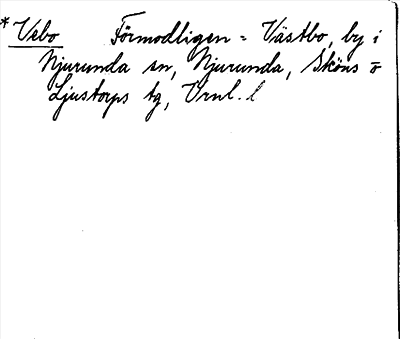 * Vebo Förmodligen = Västbo, by i
Njurunda sn, Njurunda, Sköns o
Ljustorps tg, Vrnl. l